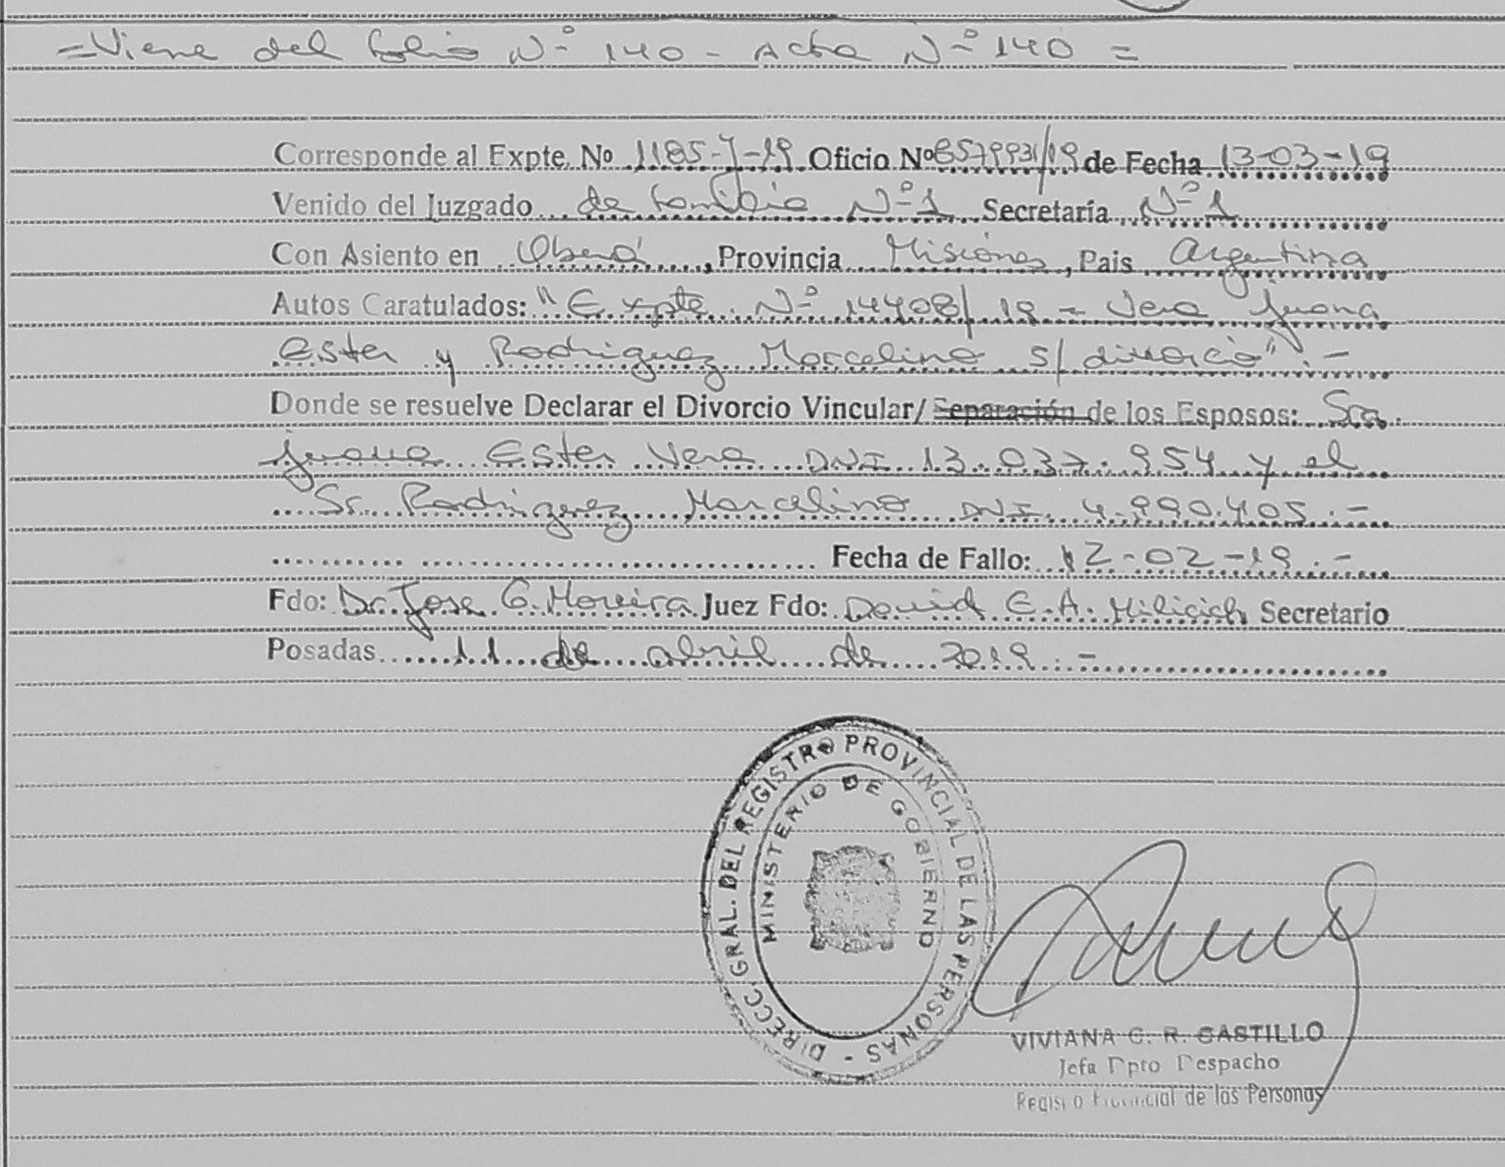 =Viene del folio Nº 140 - Acta Nº 140 =
Corresponde al Expte. Nº 1185-J-19 Oficio Nº 8579931/19 de Fecha 13-03-19
Venido del Juzgado de Familia Nº 1 Secretaría Nº 1
Con Asiento en Oberá, Provincia Misiones, Pais Argentina
Autos Caratulados: "Expte. Nº 14408/19 - Vera Juana
Ester y Rodriguez Marcelino s/divorcio".-
Donde se resuelve Declarar el Divorcio Vincular/ Separación de los Esposos: Sra.
Juana Ester Vera DNI 13.037.954 y el
Sr. Rodriguez Marcelino DNI 4.990.405.-
Fecha de Fallo: 12-02-19.-
Fdo: Dr. Jose G. Moreira Juez Fdo: David E. A. Milicich Secretario
Posadas 11 de abril de 2019.-
DIRECC. GRAL. DEL REGISTRO PROVINCIAL DE LAS PERSONAS -
MINISTERIO DE GOBIERNO
VIVIANA C. R. CASTILLO
Jefa Dpto Despacho
Registro Provincial de las Personas